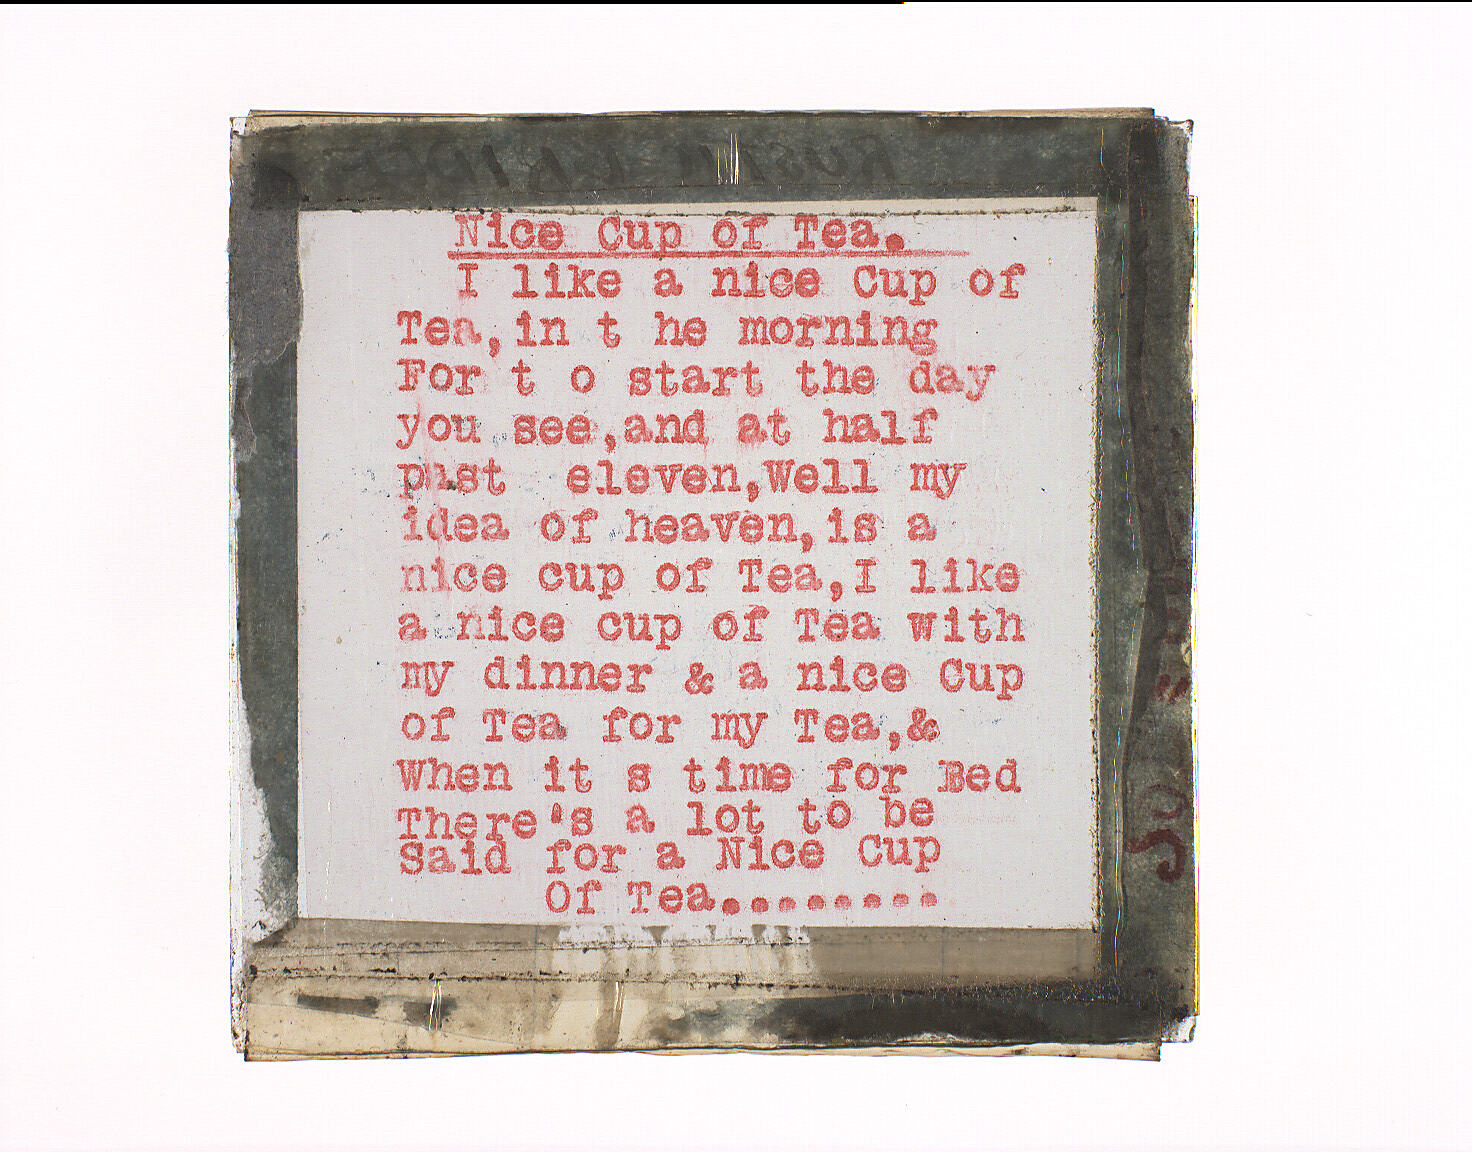 Nice Cup of Tea.
I like a nice Cup of
Tea,in t he morning
For t o start the day
you see,and at half
past eleven,Well my
idea of heaven,is a
nice cup of Tea,I like
a nice cup of Tea with
my dinner & a nice Cup
of Tea for my Tea,&
When it s time for Bed
There's a lot to be
Said for a Nice Cup
Of Tea........